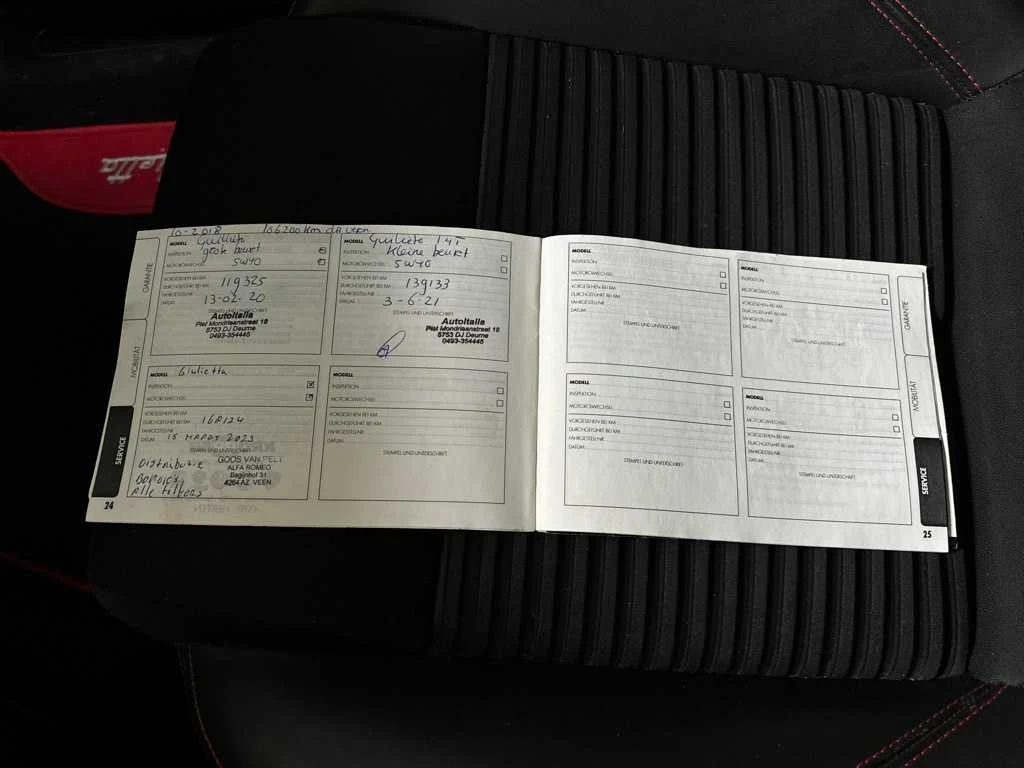 10-2018 106200km
GARANTIE
MOBILITÄT
SERVICE
MODELL Guillieta
grote beurt
INSPEKTION
MOTORÖLWECHSEL 5W40
VORGESEHEN BEI KM
DURCHGEFÜHRT BEI KM 119325
FAHRGESTELLNR.
DATUM 13-02-20
STEMPEL UND UNTERSCHRIFT
AutoItalia
Piet Mondriaanstraat 18
5753 DJ Deurne
0493-354445
MODELL Guilieta 1.4T
Kleine beurt
INSPEKTION
MOTORÖLWECHSEL 5W40
VORGESEHEN BEI KM
DURCHGEFÜHRT BEI KM 139133
FAHRGESTELLNR.
DATUM 3-6-21
STEMPEL UND UNTERSCHRIFT
AutoItalia
Piet Mondriaanstraat 18
5753 DJ Deurne
0493-354445
MODELL Giulietta
INSPEKTION
MOTORÖLWECHSEL
VORGESEHEN BEI KM
DURCHGEFÜHRT BEI KM
FAHRGESTELLNR.
DATUM 15 MAART 2023
STEMPEL UND UNTERSCHRIFT
GOOS VAN PELT
ALFA ROMEO
Baginhof 31
4264 AZ VEEN
Distributie
Bougies
Alle filters
MODELL
INSPEKTION
MOTORÖLWECHSEL
VORGESEHEN BEI KM
DURCHGEFÜHRT BEI KM
FAHRGESTELLNR.
DATUM
STEMPEL UND UNTERSCHRIFT
24
MODELL
INSPEKTION
MOTORÖLWECHSEL
VORGESEHEN BEI KM
DURCHGEFÜHRT BEI KM
FAHRGESTELLNR.
DATUM
STEMPEL UND UNTERSCHRIFT
MODELL
INSPEKTION
MOTORÖLWECHSEL
VORGESEHEN BEI KM
DURCHGEFÜHRT BEI KM
FAHRGESTELLNR.
DATUM
STEMPEL UND UNTERSCHRIFT
MODELL
INSPEKTION
MOTORÖLWECHSEL
VORGESEHEN BEI KM
DURCHGEFÜHRT BEI KM
FAHRGESTELLNR.
DATUM
STEMPEL UND UNTERSCHRIFT
MODELL
INSPEKTION
MOTORÖLWECHSEL
VORGESEHEN BEI KM
DURCHGEFÜHRT BEI KM
FAHRGESTELLNR.
DATUM
STEMPEL UND UNTERSCHRIFT
GARANTIE
MOBILITÄT
SERVICE
25